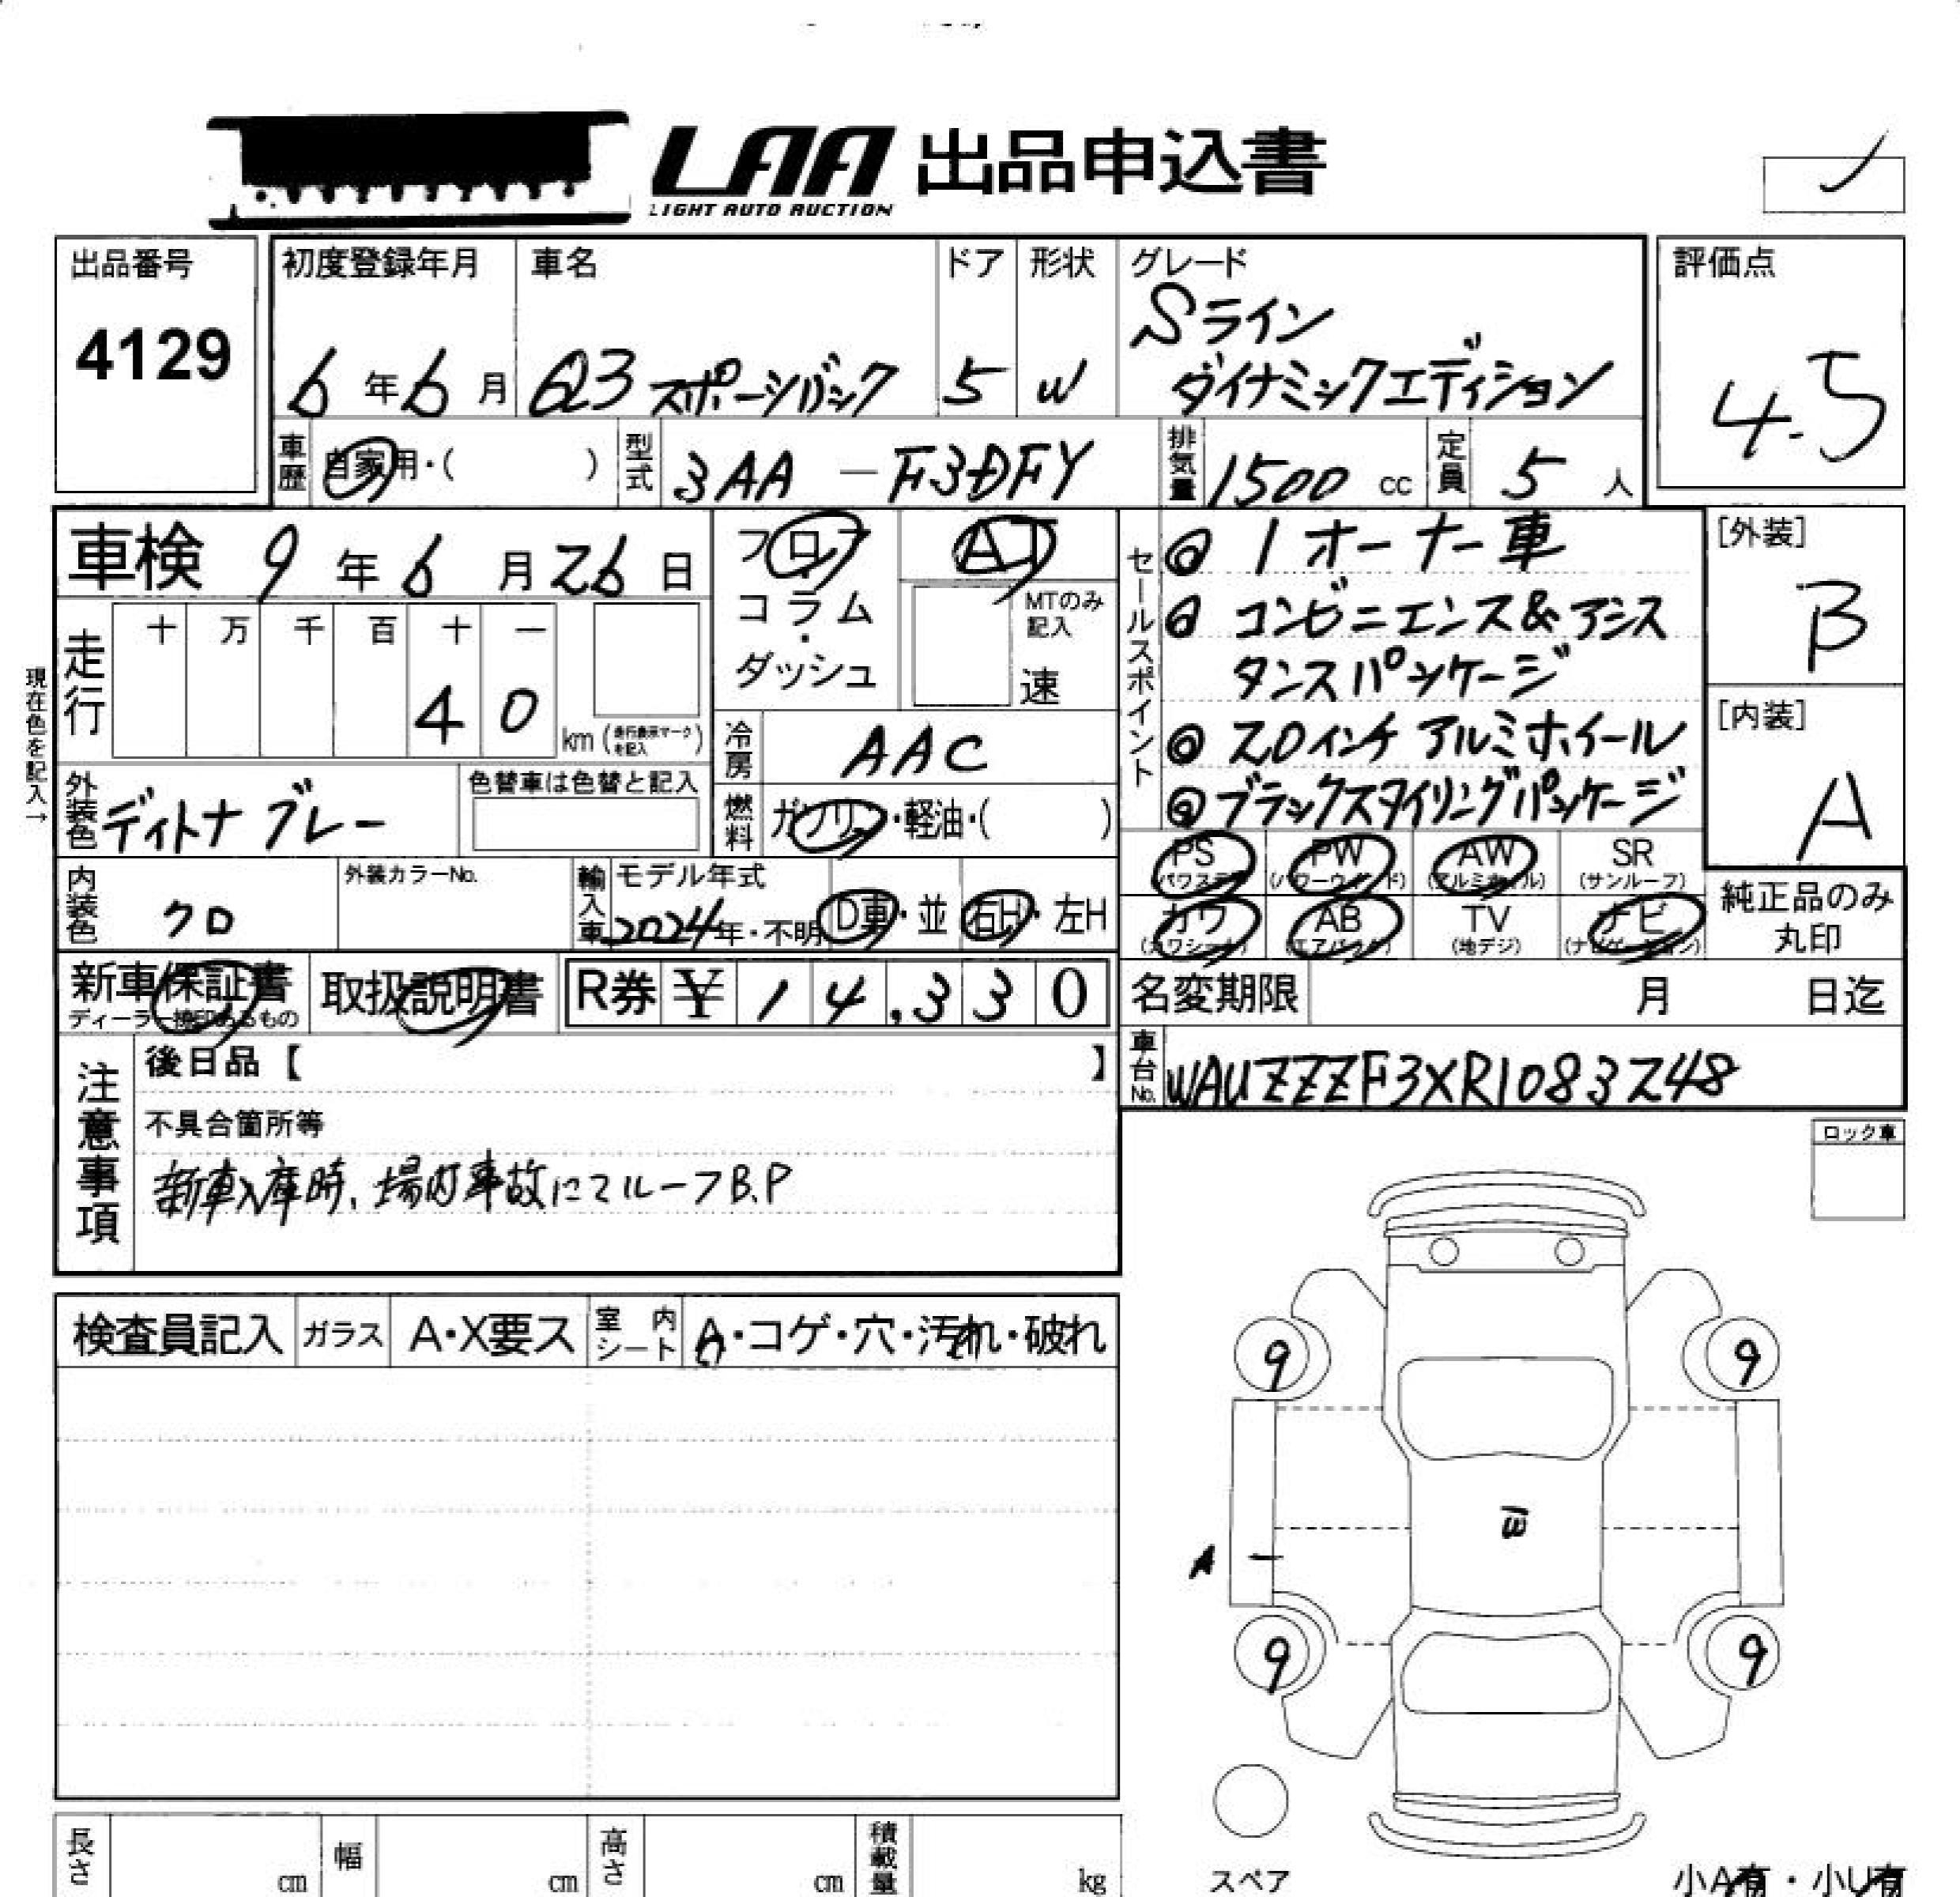 LAA 出品申込書
LIGHT AUTO AUCTION
出品番号
4129
初度登録年月
6年6月
車名
Q3 スポーツバック
ドア
5
形状
W
グレード
Sライン
ダイナミックエディション
評価点
4.5
車歴
自家用・( )
型式
3AA-F3DFY
排気量
1500 cc
定員
5人
車検 9年6月26日
フロア
コラム
・
ダッシュ
AT
MTのみ
記入
速
セールスポイント
◎ 1オーナー車
◎ コンビニエンス&アシス
タンスパッケージ
◎ 20インチ アルミホイール
◎ ブラックスタイリングパッケージ
[外装]
B
[内装]
A
現在色を記入→
走行
十 万 千 百 十 一
4 0
km (走行表示マークを記入)
冷房
AAC
外装色
デイトナグレー
色替車は色替と記入
燃料
ガソリン・軽油・( )
PS
(パワステ)
PW
(パワーウインド)
AW
(アルミホイル)
SR
(サンルーフ)
カワ
(カワシート)
AB
(エアバック)
TV
(地デジ)
ナビ
(ナビゲーション)
純正品のみ
丸印
内装色
クロ
外装カラーNo.
輸入車
モデル年式
2024年・不明
D車・並
右H・左H
新車保証書
ディーラー捺印あるもの
取扱説明書
R券 ¥ 14,330
名変期限 月 日迄
車台No.
WAUZZZF3XR1083248
注意事項
後日品【 】
不具合箇所等
新車入庫時、場内事故にてルーフB.P
ロック車
検査員記入
ガラス
A・X要ス
室内シート
A・コゲ・穴・汚れ・破れ
9
9
W
A
9
9
スペア
長さ cm
幅 cm
高さ cm
積載量 kg
小A有・小U有